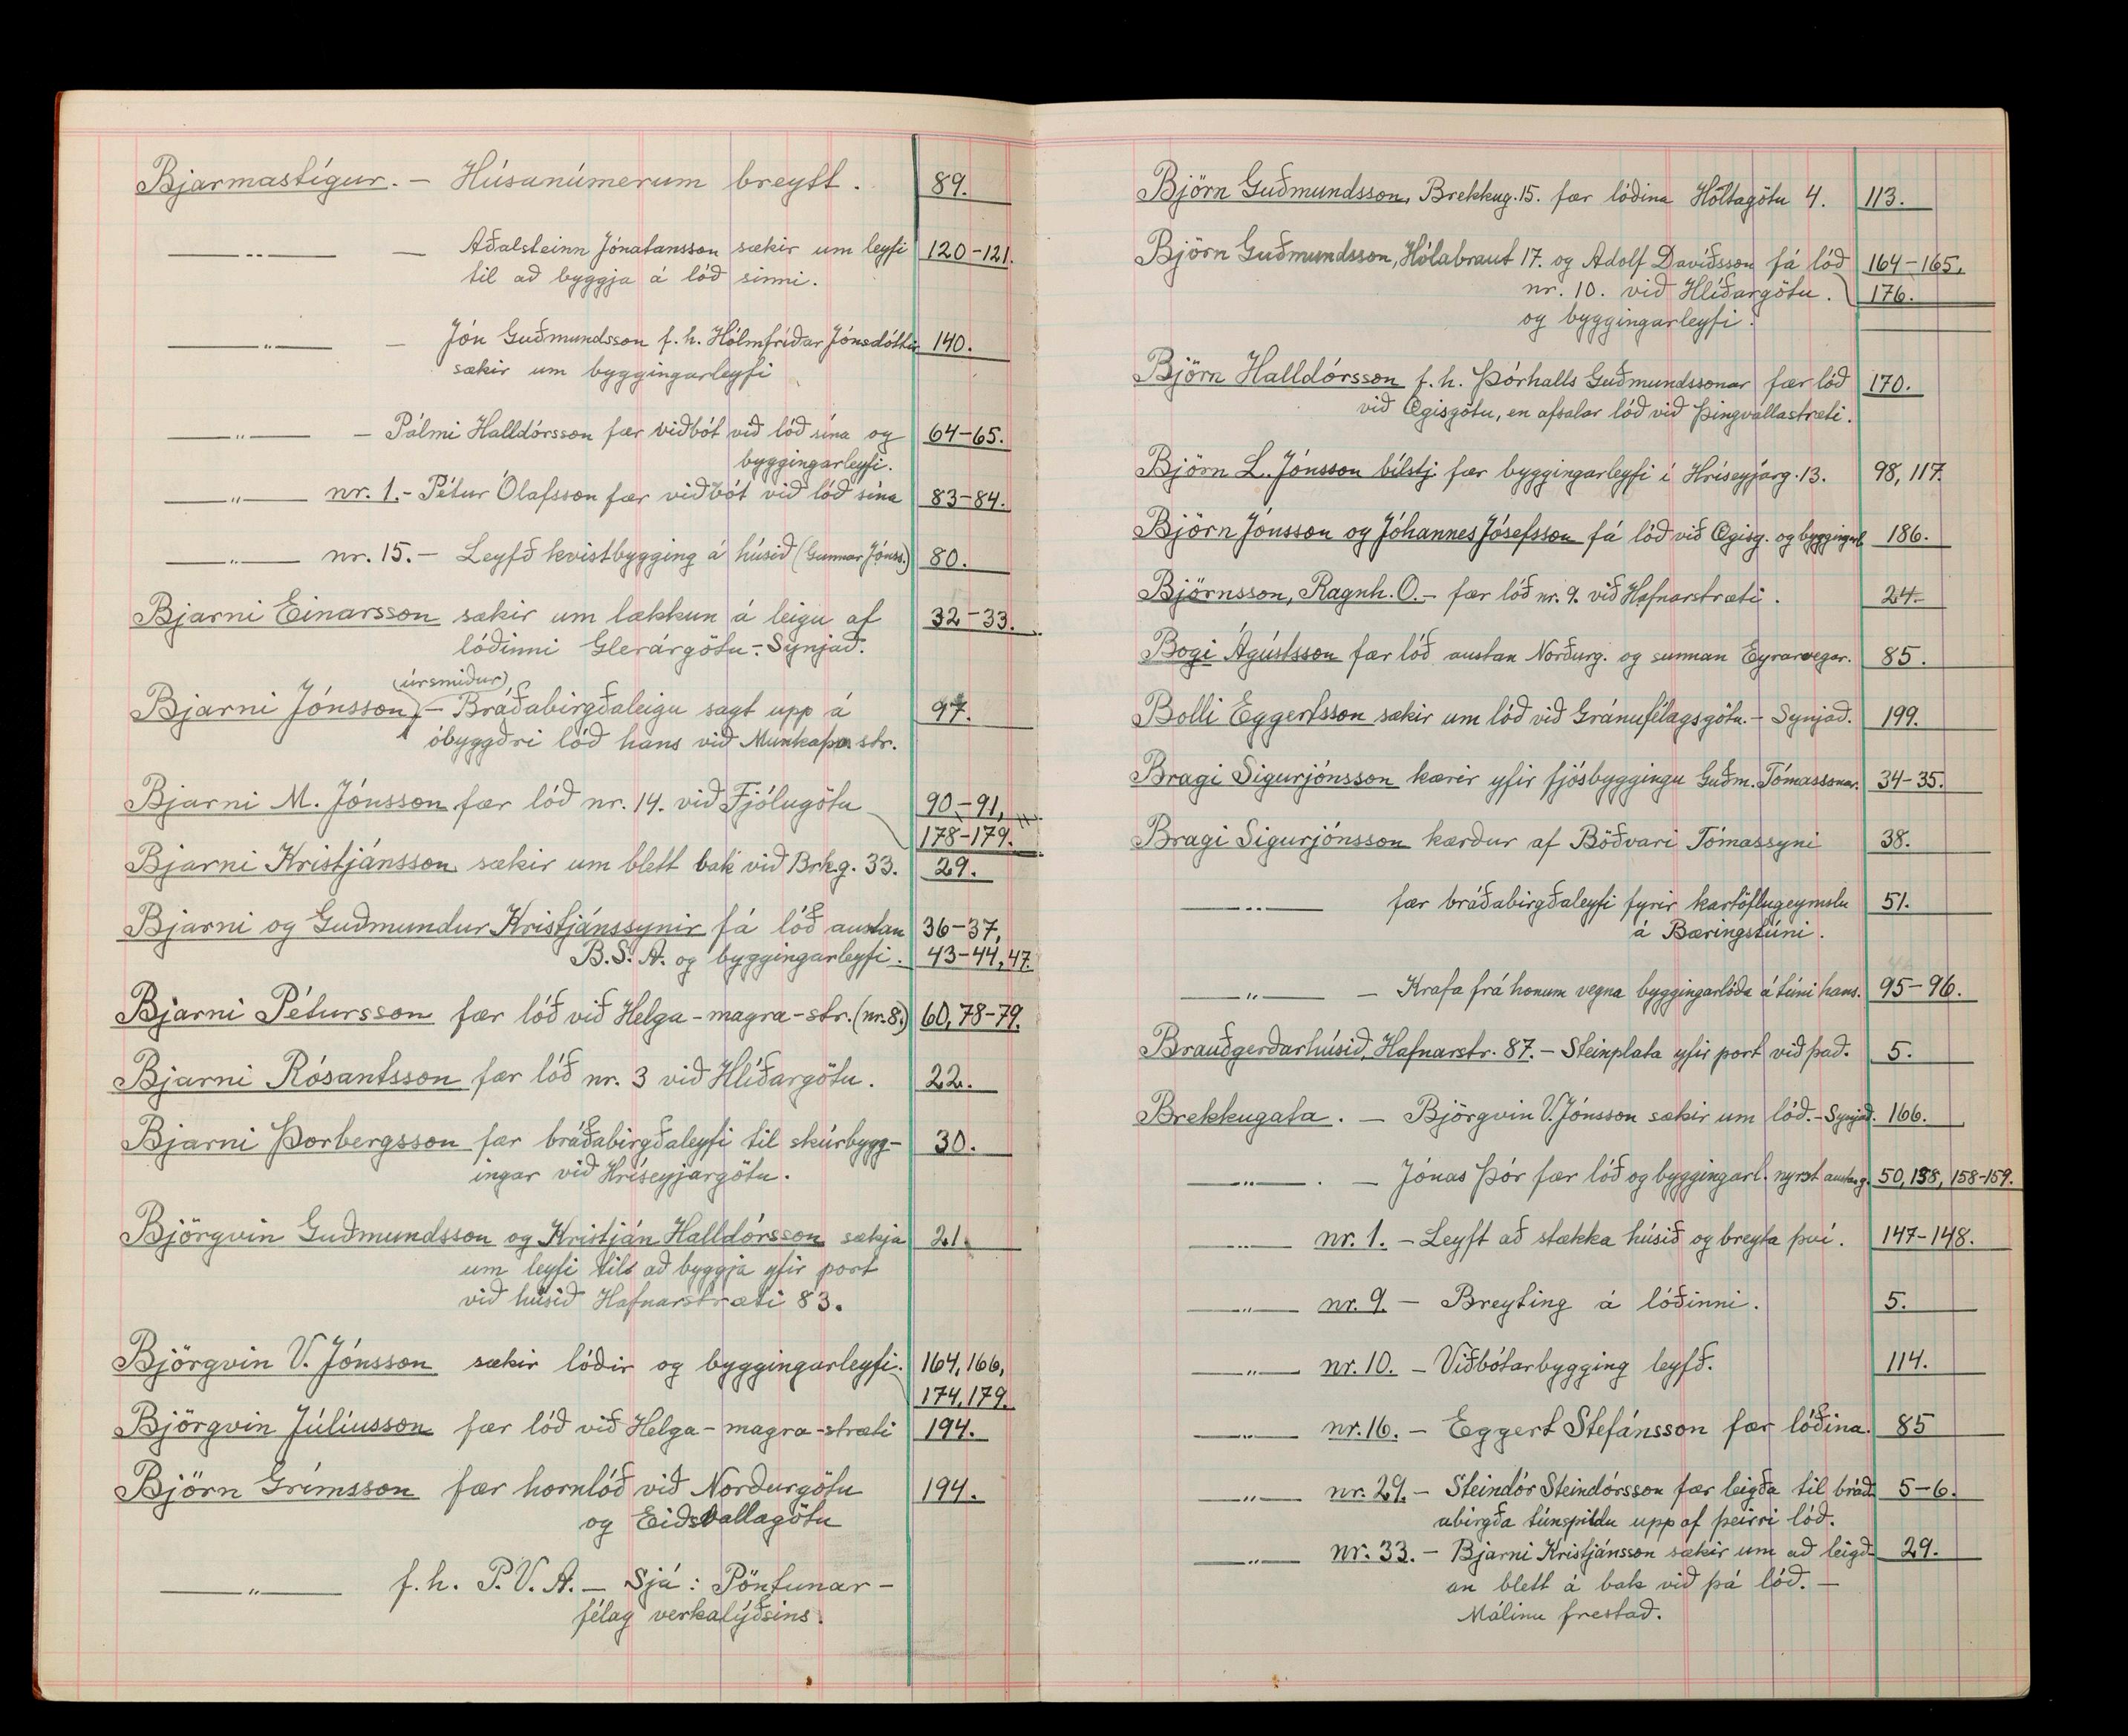 Bjarmastígur. – Húsanúmerum breytt. 89.
—„— — Aðalsteinn Jónatansson sækir um leyfi 120-121.
til að byggja á lóð sinni.
—„— – Jón Guðmundsson f. h. Hólmfríðar Jónsdóttir 140.
sækir um byggingarleyfi
—„— – Pálmi Halldórsson fær viðbót við lóð sína og 64-65.
byggingarleyfi.
—„— nr. 1.- Pétur Ólafsson fær viðbót við lóð sína 83-84.
—„— nr. 15.- Leyfð kvistbygging á húsið (Gunnar Jónss.) 80.
Bjarni Einarsson sækir um lækkun á leigu af 32-33.
lóðinni Glerárgötu-. Synjað.
(úrsmiður)
Bjarni Jónsson, – Bráðabirgðaleigu sagt upp á 97.
óbyggðri lóð hans við Munkaþv. str.
Bjarni M. Jónsson fær lóð nr. 14. við Fjólugötu 90-91,
178-179.
Bjarni Kristjánsson sækir um blett bak við Brkg. 33. 29.
Bjarni og Guðmundur Kristjánssynir fá lóð austan 36-37,
B.S.A. og byggingarleyfi. 43-44, 47.
Bjarni Pétursson fær lóð við Helga-magra-str. (nr. 8.) 60, 78-79.
Bjarni Rósantsson fær lóð nr. 3 við Hlíðargötu. 22.
Bjarni Þorbergsson fær bráðabirgðaleyfi til skúrbygg- 30.
ingar við Hríseyjargötu.
Björgvin Guðmundsson og Kristján Halldórsson sækja 21.
um leyfi til að byggja yfir port
við húsið Hafnarstræti 83.
Björgvin V. Jónsson sækir lóðir og byggingarleyfi. 164, 166,
174, 179.
Björgvin Júlíusson fær lóð við Helga-magra-stræti 194.
Björn Grímsson fær hornlóð við Norðurgötu 194.
og Eiðsvallagötu
—„— f. h. P.V.A. – Sjá: Pöntunar-
félag verkalýðsins.
Björn Guðmundsson, Brekkug. 15. fær lóðina Holtagötu 4. 113.
Björn Guðmundsson, Hólabraut 17. og Adolf Davíðsson fá lóð 164-165,
nr. 10. við Hlíðargötu. 176.
og byggingarleyfi.
Björn Halldórsson f. h. Þórhalls Guðmundssonar fær lóð 170.
við Ægisgötu, en afsalar lóð við Þingvallastræti.
Björn L. Jónsson bílstj. fær byggingarleyfi í Hríseyjarg. 13. 98, 117.
Björn Jónsson og Jóhannes Jósefsson fá lóð við Ægisg. og byggingarl. 186.
Björnsson, Ragnh. O. - fær lóð nr. 9. við Hafnarstræti. 24.
Bogi Ágústsson fær lóð austan Norðurg. og sunnan Eyrarvegar. 85.
Bolli Eggertsson sækir um lóð við Gránufélagsgötu. - Synjað. 199.
Bragi Sigurjónsson kærir yfir fjósbyggingu Guðm. Tómassonar. 34-35.
Bragi Sigurjónsson kærður af Böðvari Tómassyni 38.
—„— fær bráðabirgðaleyfi fyrir kartöflugeymslu 51.
á Bæringstúni.
—„— – Krafa frá honum vegna byggingarlóða á túni hans. 95-96.
Brauðgerðarhúsið, Hafnarstr. 87. - Steinplata yfir port við það. 5.
Brekkugata. – Björgvin V. Jónsson sækir um lóð. - Synjað. 166.
—„—. – Jónas Þór fær lóð og byggingarl. nyrst austan g. 50, 138, 158-159.
—„— nr. 1. – Leyft að stækka húsið og breyta því. 147-148.
—„— nr. 9. – Breyting á lóðinni. 5.
—„— nr. 10. – Viðbótarbygging leyfð. 114.
—„— nr. 16. – Eggert Stefánsson fær lóðina. 85
—„— nr. 29. – Steindór Steindórsson fær leigða til bráð- 5-6.
abirgða túnspildu upp af þeirri lóð.
—„— nr. 33. – Bjarni Kristjánsson sækir um að leigð- 29.
an blett á bak við þá lóð. –
Málinu frestað.